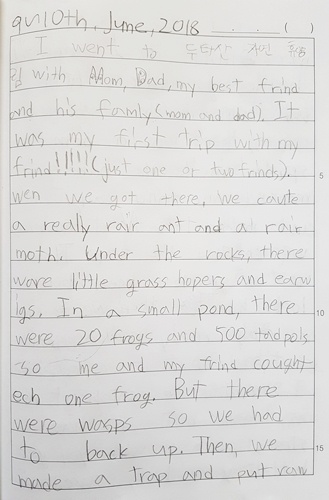 10th, June, 2018 ( )
I went to 두타산 자연 휴양
림 with Mom, Dad, my best frind
and his famly (mom and dad). It
was my first trip with my
frind!!!!! (just one or two frinds).
5
wen we got there, we caute
a really rair ant and a rair
moth. Under the rocks, there
ware little grass hopers and earw
igs. In a small pond, there
10
were 20 frogs and 500 tadpols
so me and my frind cought
ech one frog. But there
were wasps so we had
to back up. Then, we
15
made a trap and put raw